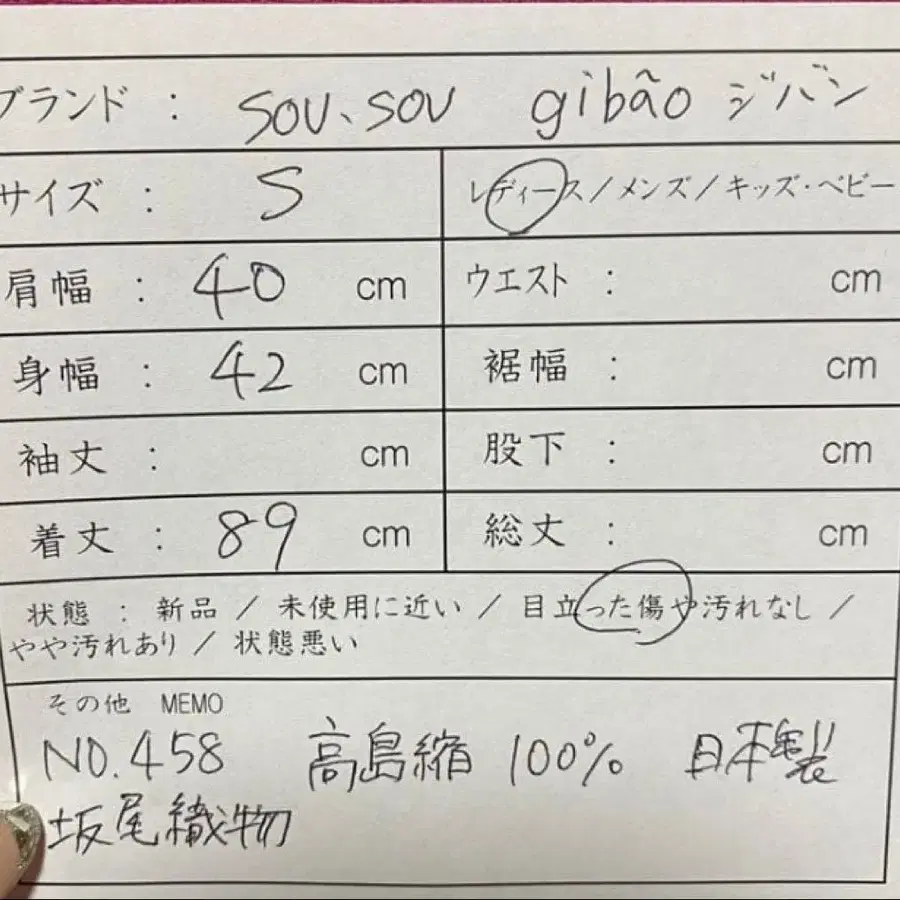 ブランド : SOU.SOU gibão ジバン
サイズ : S レディース/メンズ/キッズ・ベビー
肩幅 : 40 cm ウエスト : cm
身幅 : 42 cm 裾幅 : cm
袖丈 : cm 股下 : cm
着丈 : 89 cm 総丈 : cm
状態 : 新品 / 未使用に近い / 目立った傷や汚れなし /
やや汚れあり / 状態悪い
その他 MEMO
NO.458 高島縮 100% 日本製
坂尾織物